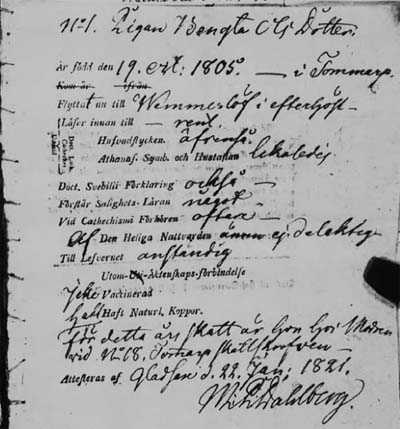 No 1. Pigan Bengta Ols Dotter.
Är född den 19. Oct: 1805. — i Tommarp
Kom år ifrån
Flyttat nu till Wemmerlöf i efterhöst
Läser innan till — rent.
Hufvudstycken. äfvenså.
Athanas. Symb. och Hustaflan
Doct. Luth. Catheches
Doct. Svebilii Förklaring också —
Förstår Salighets-Läran något —
Vid Cathechismi Förhören oftare —
Af Den Heliga Nattvarden ännu ej delaktig
Till Lefvernet anständig
Utom-Äktenskaps-förbindelse
Icke Vaccinerad
Haft Naturl. Koppor.
För detta års skatt är hon hos
vid N 18. Tomarp
Attesteras af Gladsax d. 22. Jan: 1821.